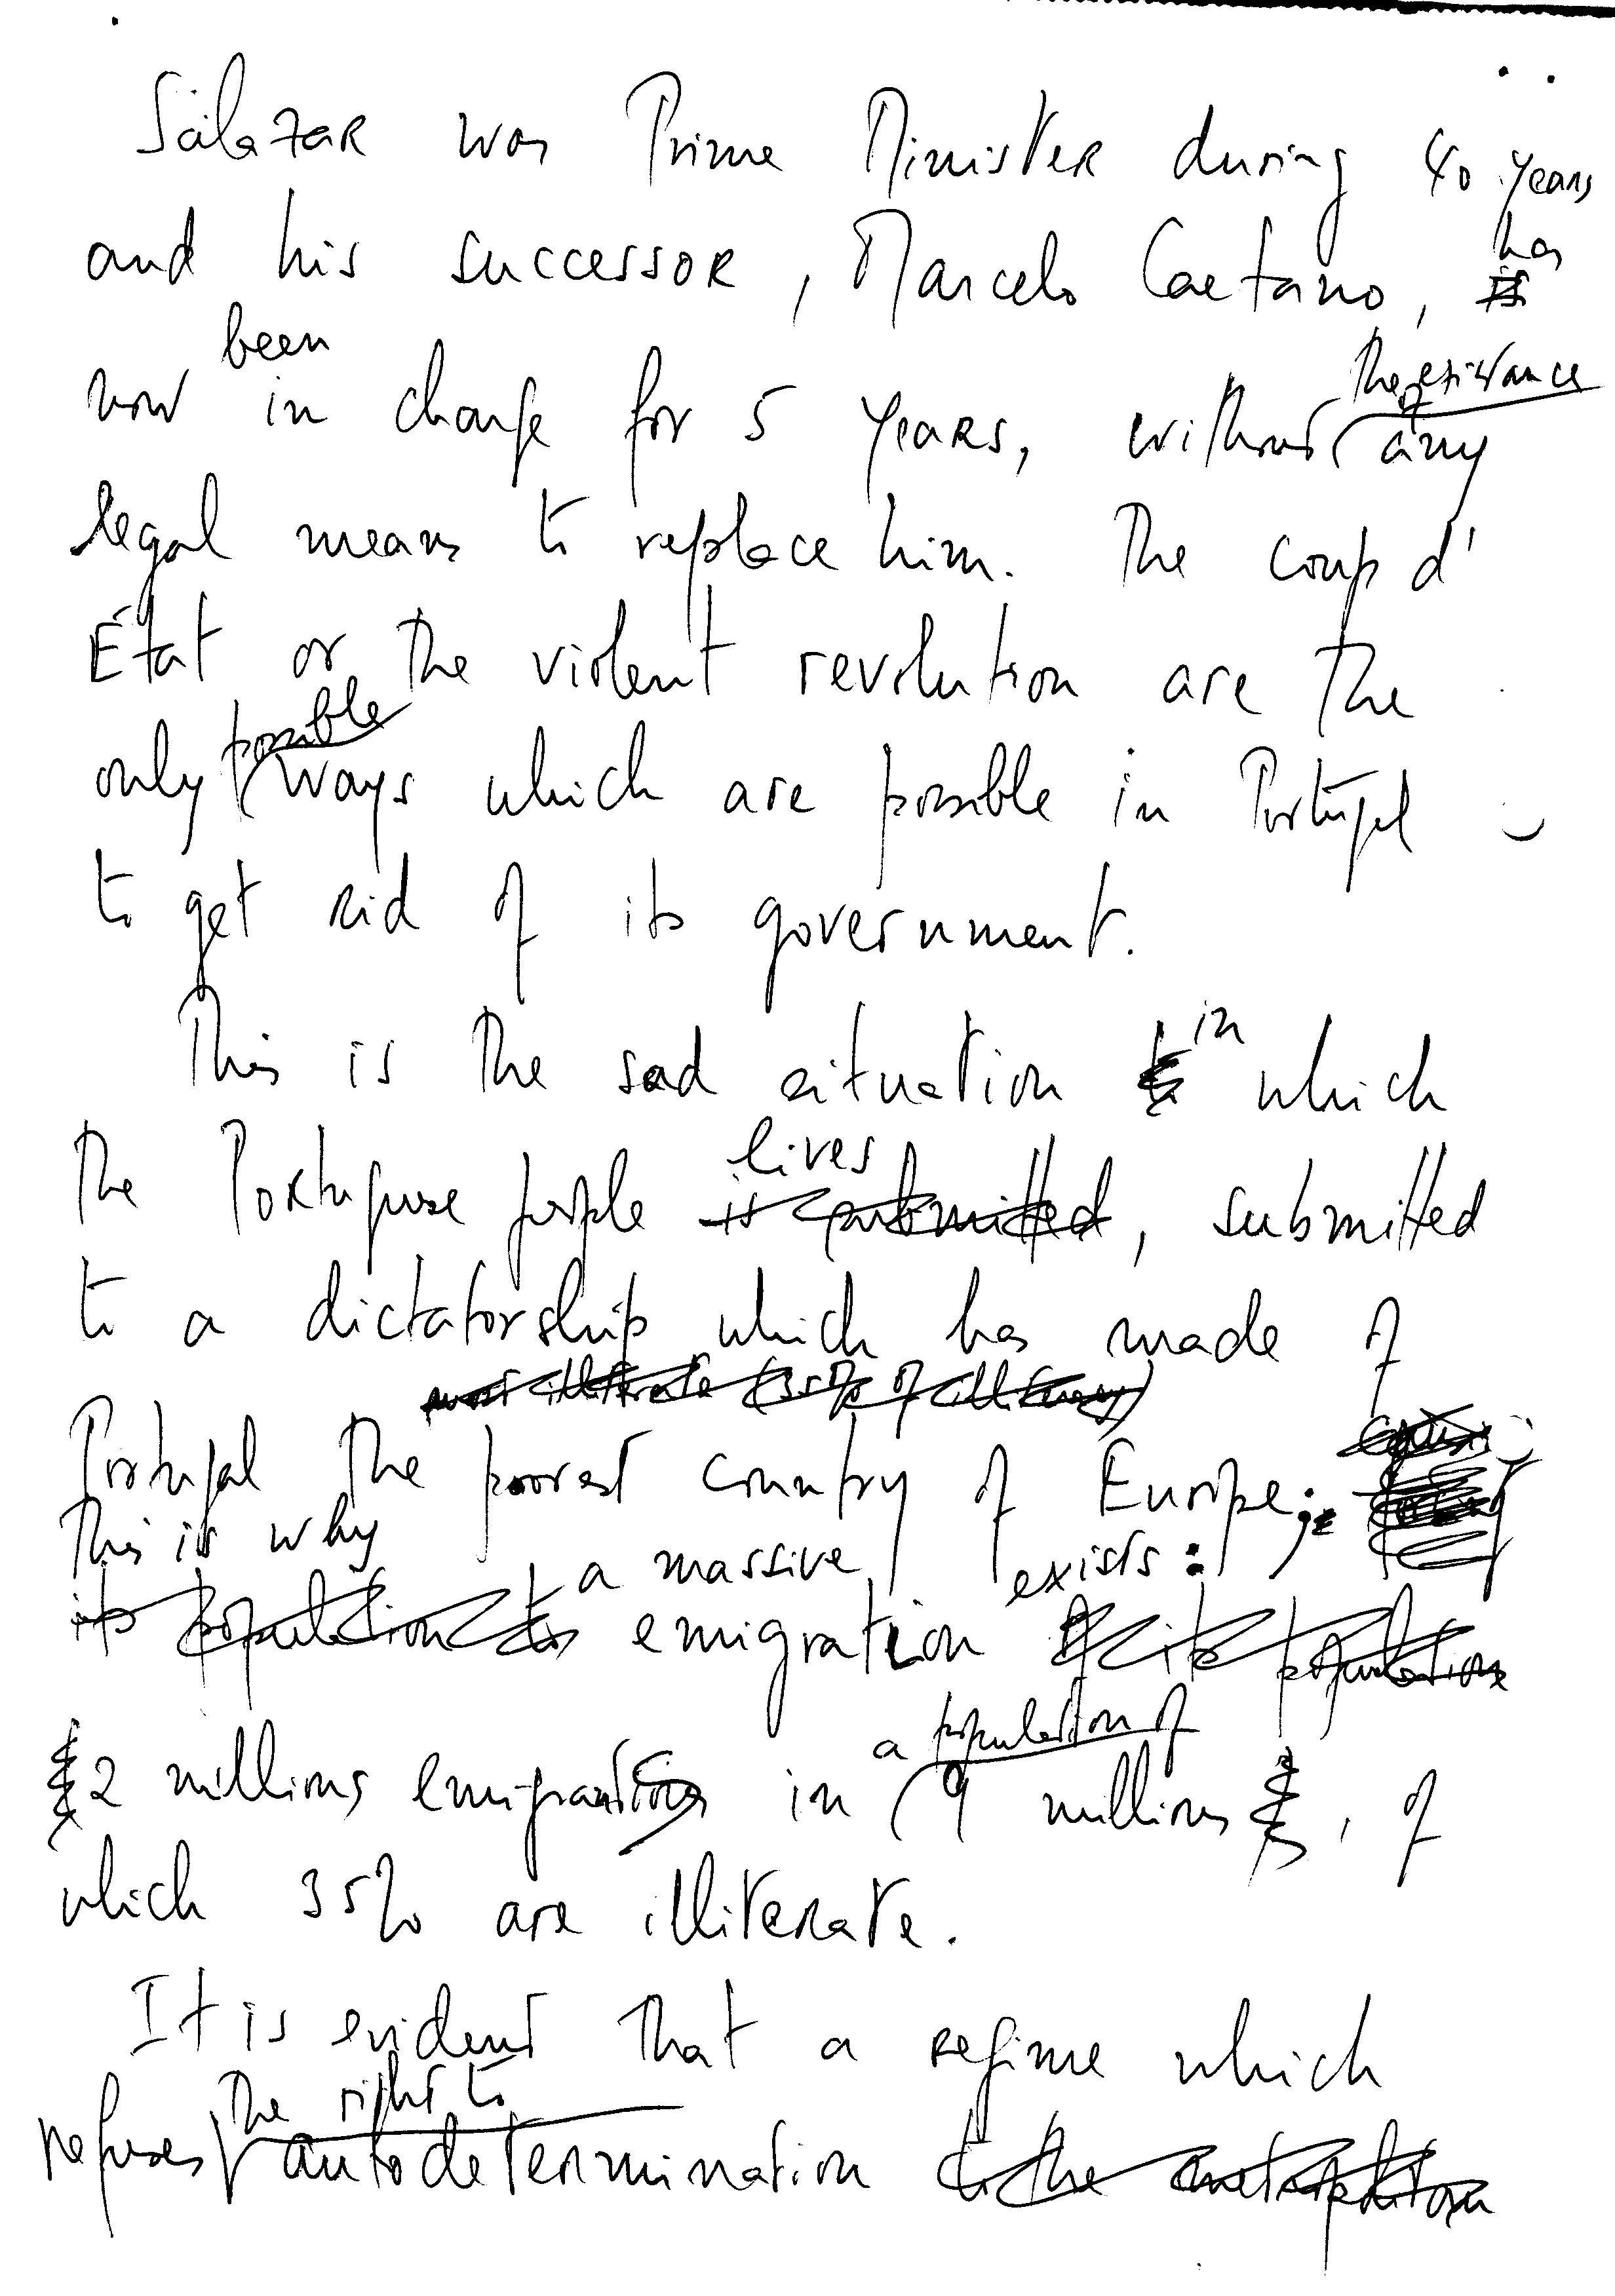 Salazar was Prime Minister during 40 years
and his successor, Marcelo Caetano, is has
now been in charge for 5 years, without the existence of any
legal means to replace him. The coup d'
État or the violent revolution are the
only possible ways which are possible in Portugal
to get rid of its government.
This is the sad situation in which
the Portuguese people lives is submitted, submitted
to a dictatorship which has made of
most illiterate (35% of illiteracy)
Portugal the poorest country of Europe:
This is why a massive exists:
its population to emigration of its population
2 millions emigrants in a population of 9 millions, of
which 35% are illiterate.
It is evident that a regime which
refuses the right to autodetermination to the metropolitan